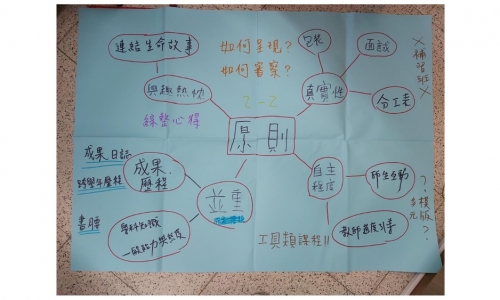 連結生命故事
興趣熱忱
綜整心得
如何呈現？
如何審察？
2-2
原則
包裝
面試
真實性
分工表
X補習班X
成果日誌
跨學年歷程
書牘
成果．
歷程
並重
學科知識
一般能力與態度
自主
程度
師生互動
教師適度引導
工具類課程!!
？多元模版？？